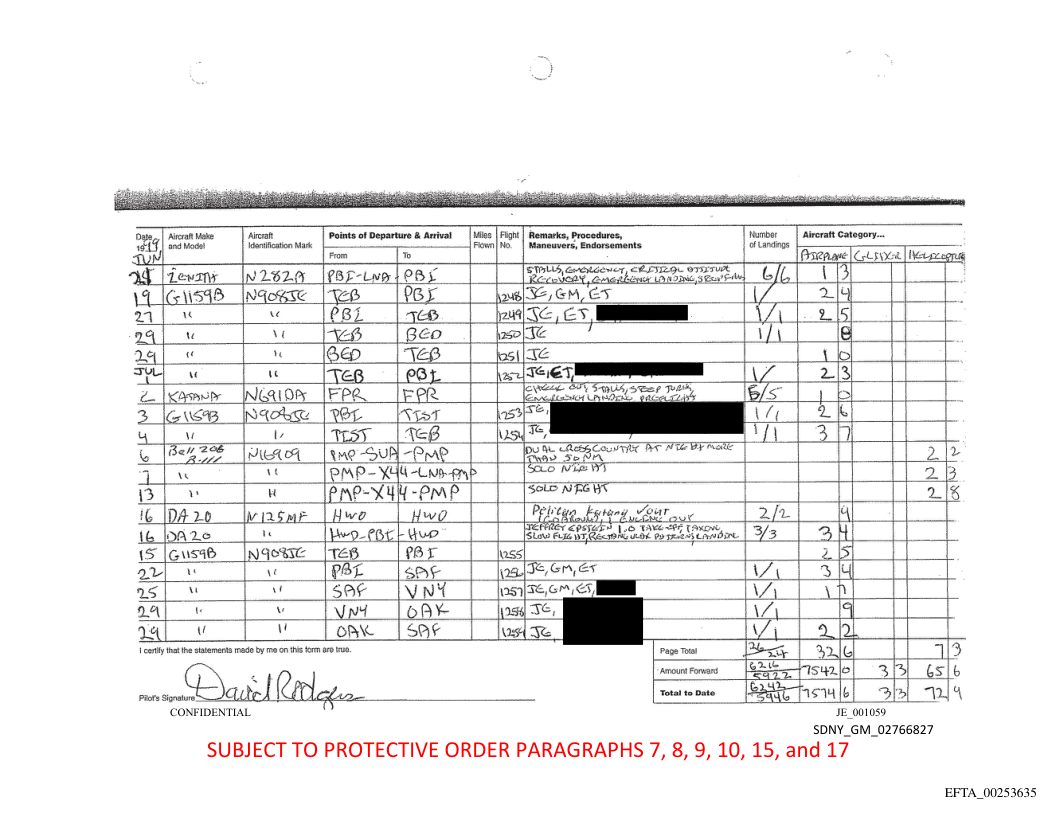 Date 1999 Aircraft Make and Model Aircraft Identification Mark Points of Departure & Arrival Miles Flown Flight No. Remarks, Procedures, Maneuvers, Endorsements Number of Landings Aircraft Category...
JUN From To AIRPLANE GLIDER HELICOPTER
ZENITA N282A PBI-LNA- PBI STALLS, EMERGENCY, CRITICAL ATTITUDE 6/6 1 3
RECOVERY, EMERGENCY LANDING,
19 G1159B N908JE TEB PBI 1248 JE, GM, ET 1/ 2 4
27 " " PBI TEB 1249 JE, ET, 1/1 2 5
29 " " TEB BED 1250 JE 1/1 8
29 " " BED TEB 1251 JE 1 0
JUL 1 " " TEB PBI 1252 JE, ET, 1/ 2 3
2 KATANA N691DA FPR FPR CHECK OUT, STALLS, STEEP TURNS, 5/5 1 0
EMERGENCY LANDING
3 G1159B N908JE PBI TIST 1253 JE, 1/1 2 6
4 " " TIST TEB 1254 JE, 1/1 3 7
6 Bell 206 B-III N16909 PMP-SUA-PMP DUAL CROSS COUNTRY AT NIGHT MORE 2 2
THAN 50NM
7 " " PMP-X44-LNA-PMP SOLO NIGHT 2 3
13 " " PMP-X44-PMP SOLO NIGHT 2 8
16 DA20 N125MF HWO HWO Pelican Katana 2/2 9
1 ENGINE OUT
16 DA20 " HWO-PBI-HWO JEFFREY EPSTEIN 1.0 TAKE OFF, TAXING, 3/3 3 4
SLOW FLIGHT, LANDING
15 G1159B N908JE TEB PBI 1255 2 5
22 " " PBI SAF 1256 JE, GM, ET 1/1 3 4
25 " " SAF VNY 1257 JE, GM, ET, 1/1 1 7
29 " " VNY OAK 1258 JE, 1/1 9
29 " " OAK SAF 1259 JE, 1/1 2 2
I certify that the statements made by me on this form are true. Page Total 26 24 32 6 7 3
Amount Forward 6216 5922 7542 0 3 3 65 6
Pilot's Signature David Rodgers Total to Date 6242 5946 7574 6 3 3 72 9
CONFIDENTIAL JE_001059
SDNY_GM_02766827
SUBJECT TO PROTECTIVE ORDER PARAGRAPHS 7, 8, 9, 10, 15, and 17
EFTA_00253635